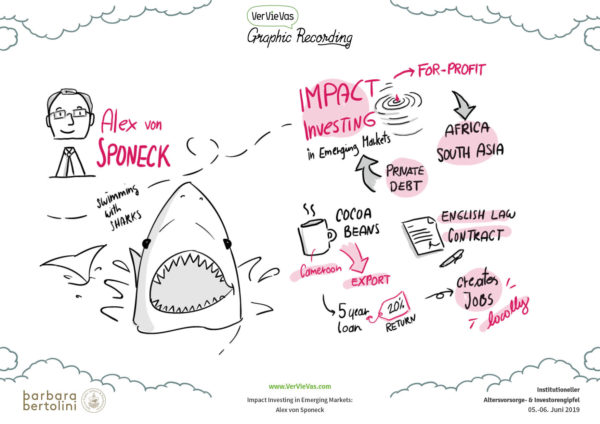 VerVieVas
Graphic Recording
Alex von
SPONECK
Swimming
with
SHARKS
IMPACT
Investing
in Emerging Markets
FOR-PROFIT
AFRICA
SOUTH ASIA
PRIVATE
DEBT
COCOA
BEANS
Cameroon
EXPORT
5 year
loan
20%
RETURN
ENGLISH LAW
CONTRACT
creates
JOBS
locally
barbara
bertolini
www.VerVieVas.com
Impact Investing in Emerging Markets:
Alex von Sponeck
Institutioneller
Altersvorsorge- & Investorengipfel
05.-06. Juni 2019